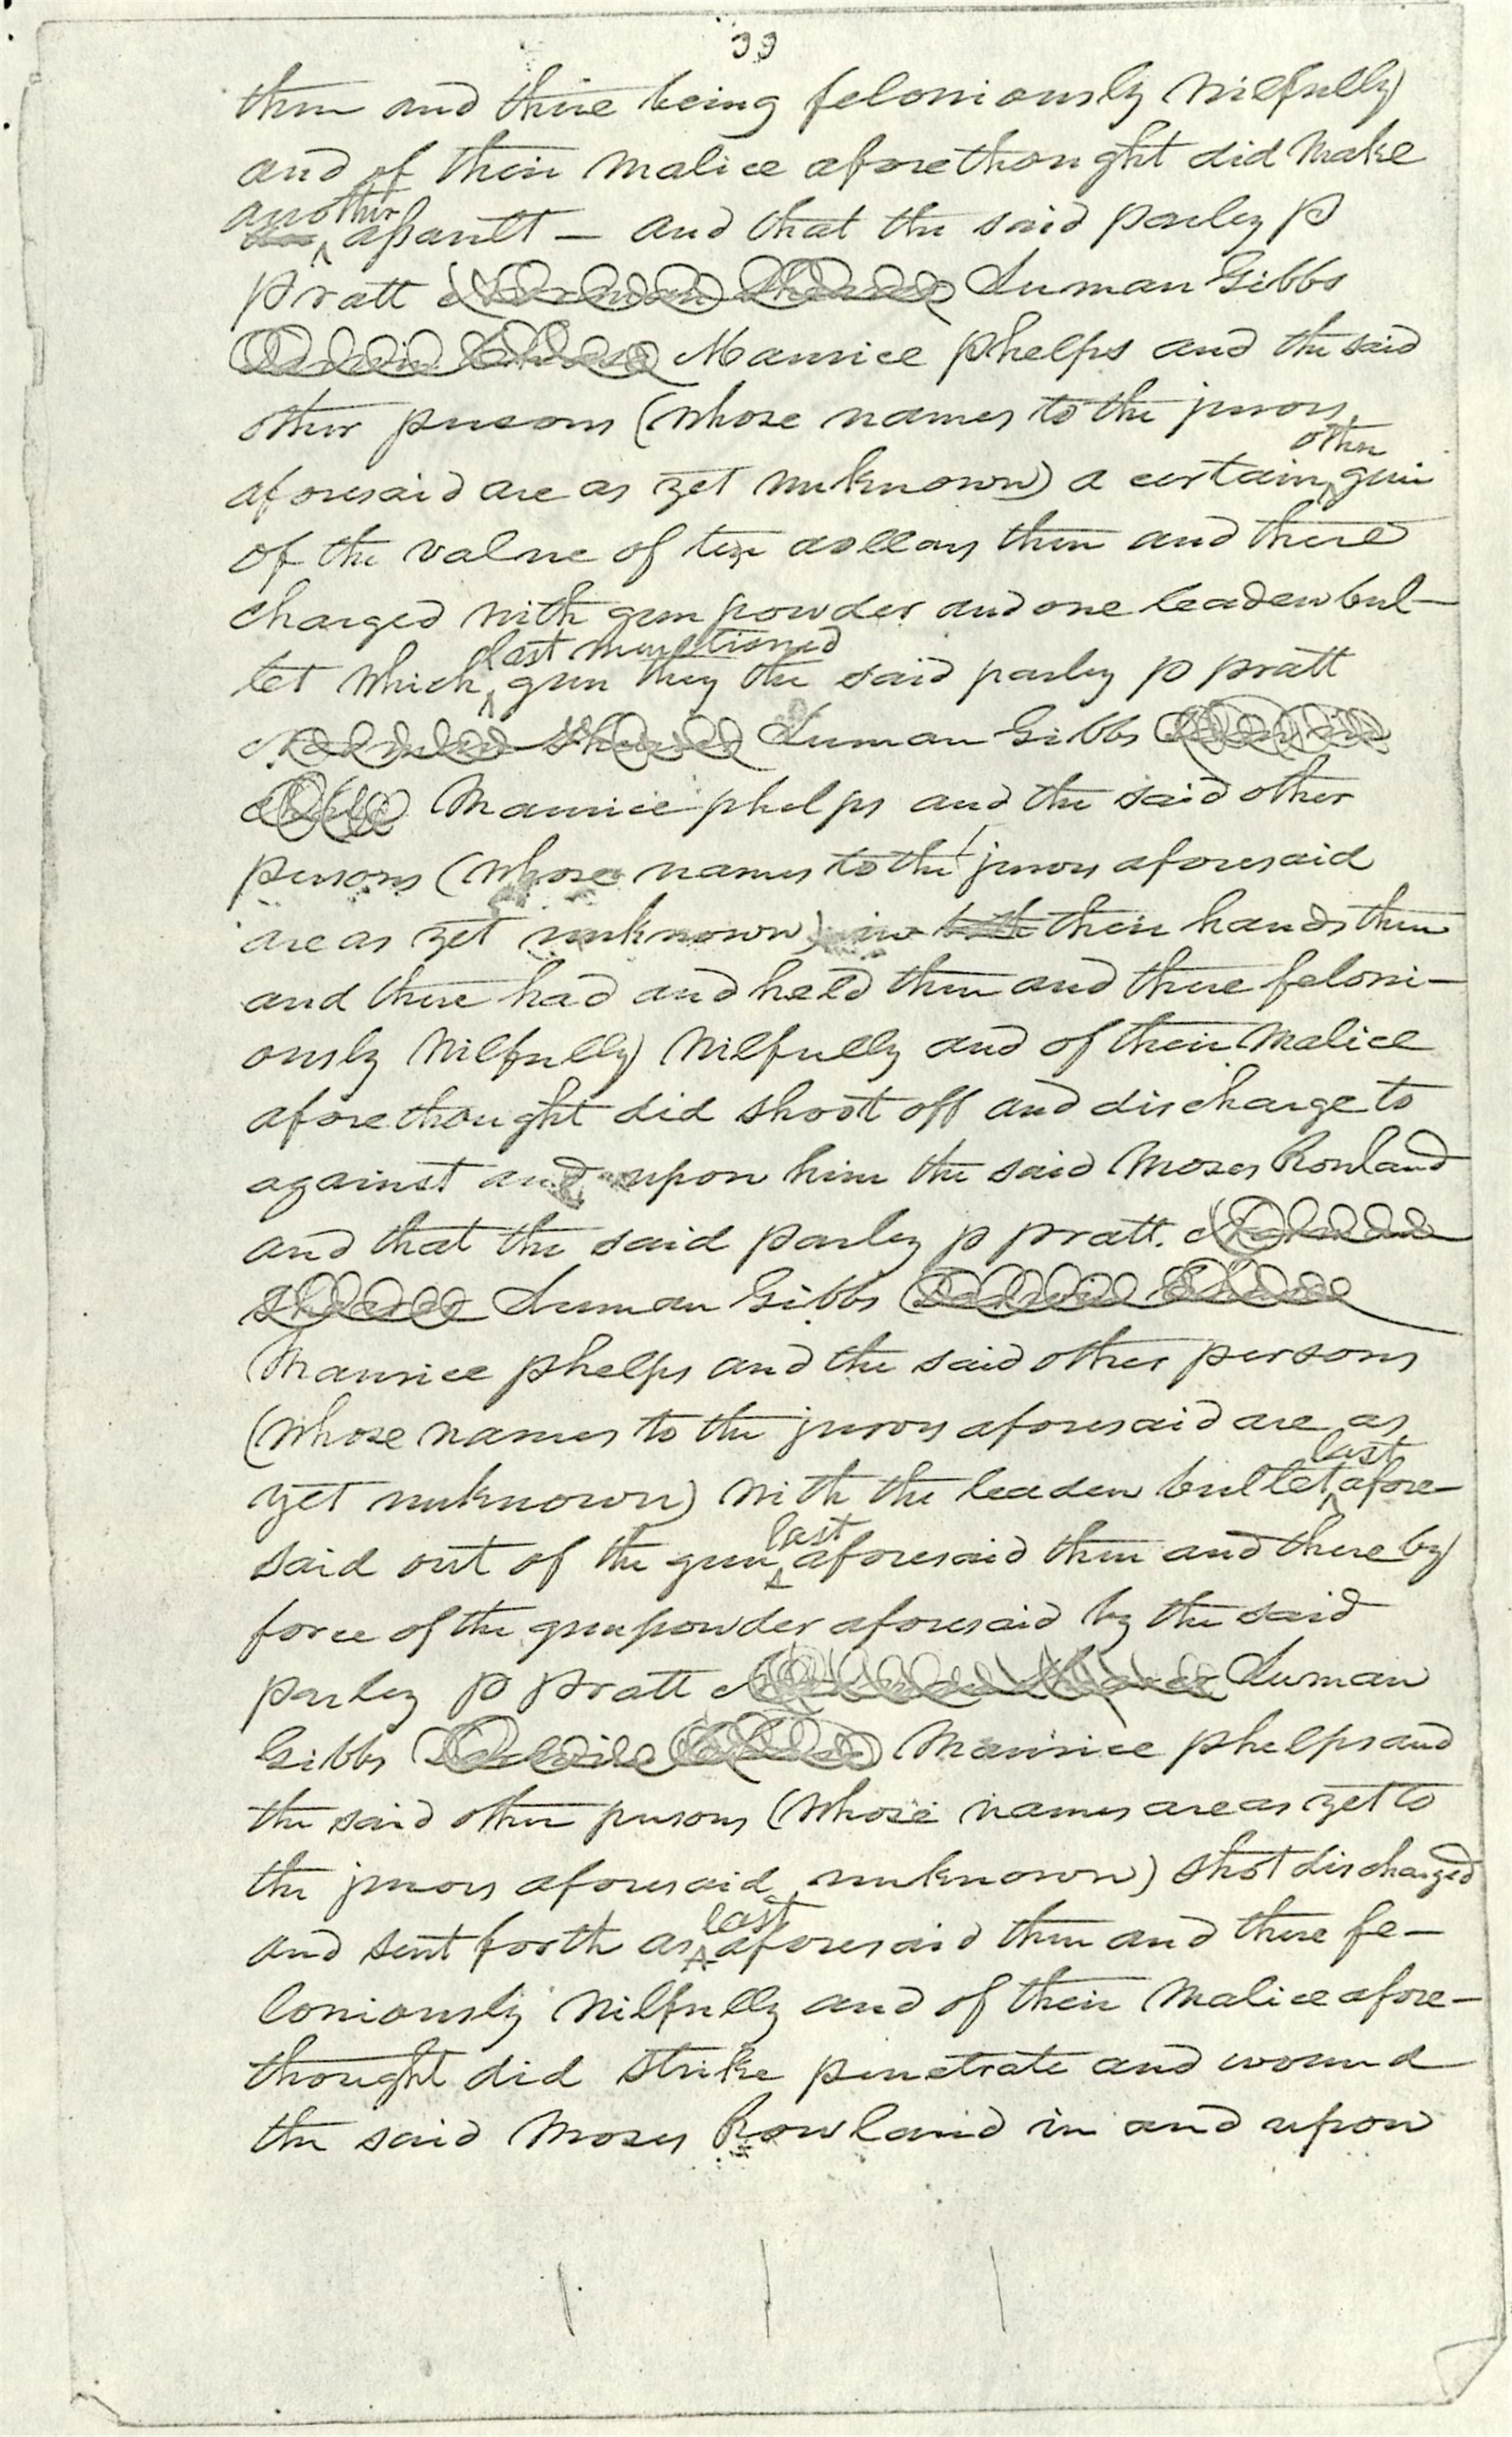 33
then and there being feloniously wilfully
and of their malice aforethought did make
another assault — and that the said parley P
Pratt Norman Shearer Luman Gibbs
Darwin Chase Maurice Phelps and the said
other persons (whose names to the jurors
aforesaid are as yet unknown) a certain other gun
of the value of ten dollars then and there
charged with gun powder and one leaden bul-
let which last mentioned gun they the said parley p pratt
Shearer Luman Gibbs
Maurice phelps and the said other
persons (whose names to the jurors aforesaid
are as yet unknown) in both their hands then
and there had and held then and there feloni-
ously wilfully wilfully and of their malice
aforethought did shoot off and discharge to
against and upon him the said Moses Rowland
and that the said parley p pratt.
Shearer Luman Gibbs Darwin Chase
Maurice phelps and the said other persons
(whose names to the jurors aforesaid are as
yet unknown) with the leaden bullet last afore-
said out of the gun last aforesaid then and there by
force of the gunpowder aforesaid by the said
parley P Pratt Norman Shearer Luman
Gibbs Darwin Chase Maurice phelps and
the said other persons (whose names are as yet to
the jurors aforesaid unknown) shot discharged
and sent forth as last aforesaid then and there fe-
loniously wilfully and of their malice afore-
thought did strike penetrate and wound
the said Moses Rowland in and upon